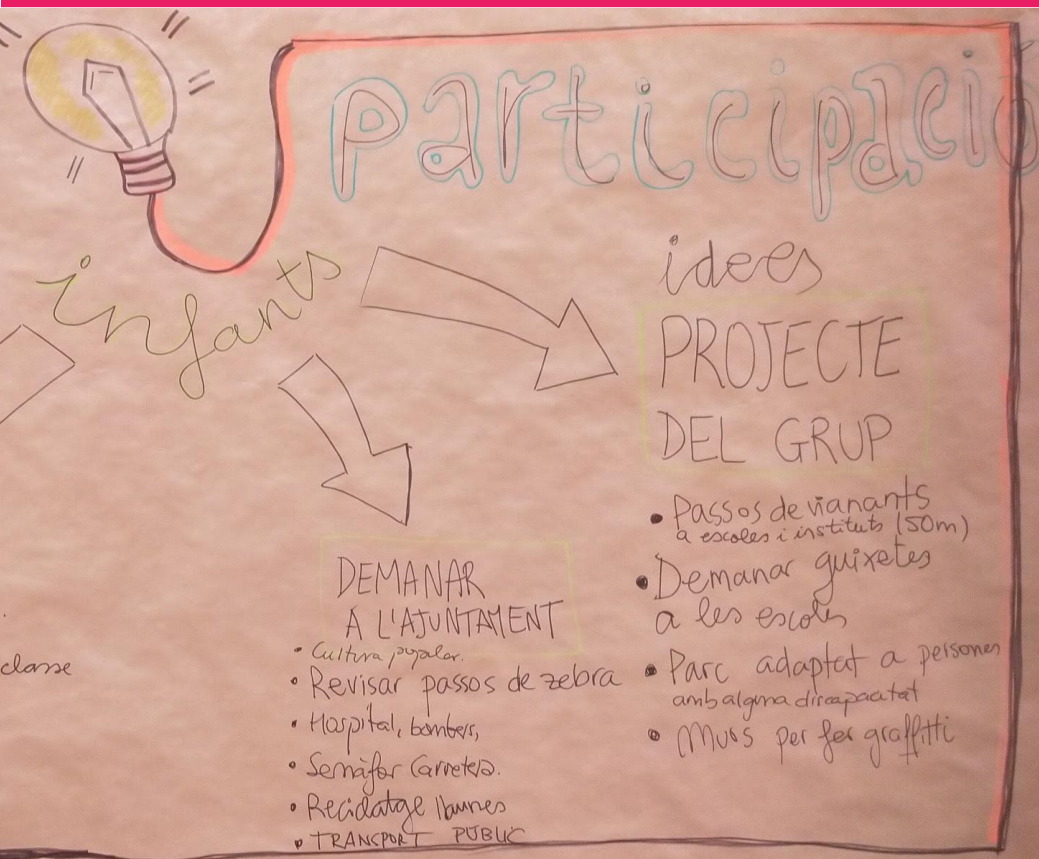 participació
infants
idees
PROJECTE
DEL GRUP
• Passos de vianants
a escoles i instituts (50m)
• Demanar guixetes
a les escoles
• Parc adaptat a persones
amb alguna discapacitat
• Murs per fer graffitti
DEMANAR
A L'AJUNTAMENT
• Cultura popular.
• Revisar passos de zebra
• Hospital, bombers,
• Semàfor Carretera.
• Reciclatge llaunes
• TRANSPORT PÚBLIC
classe